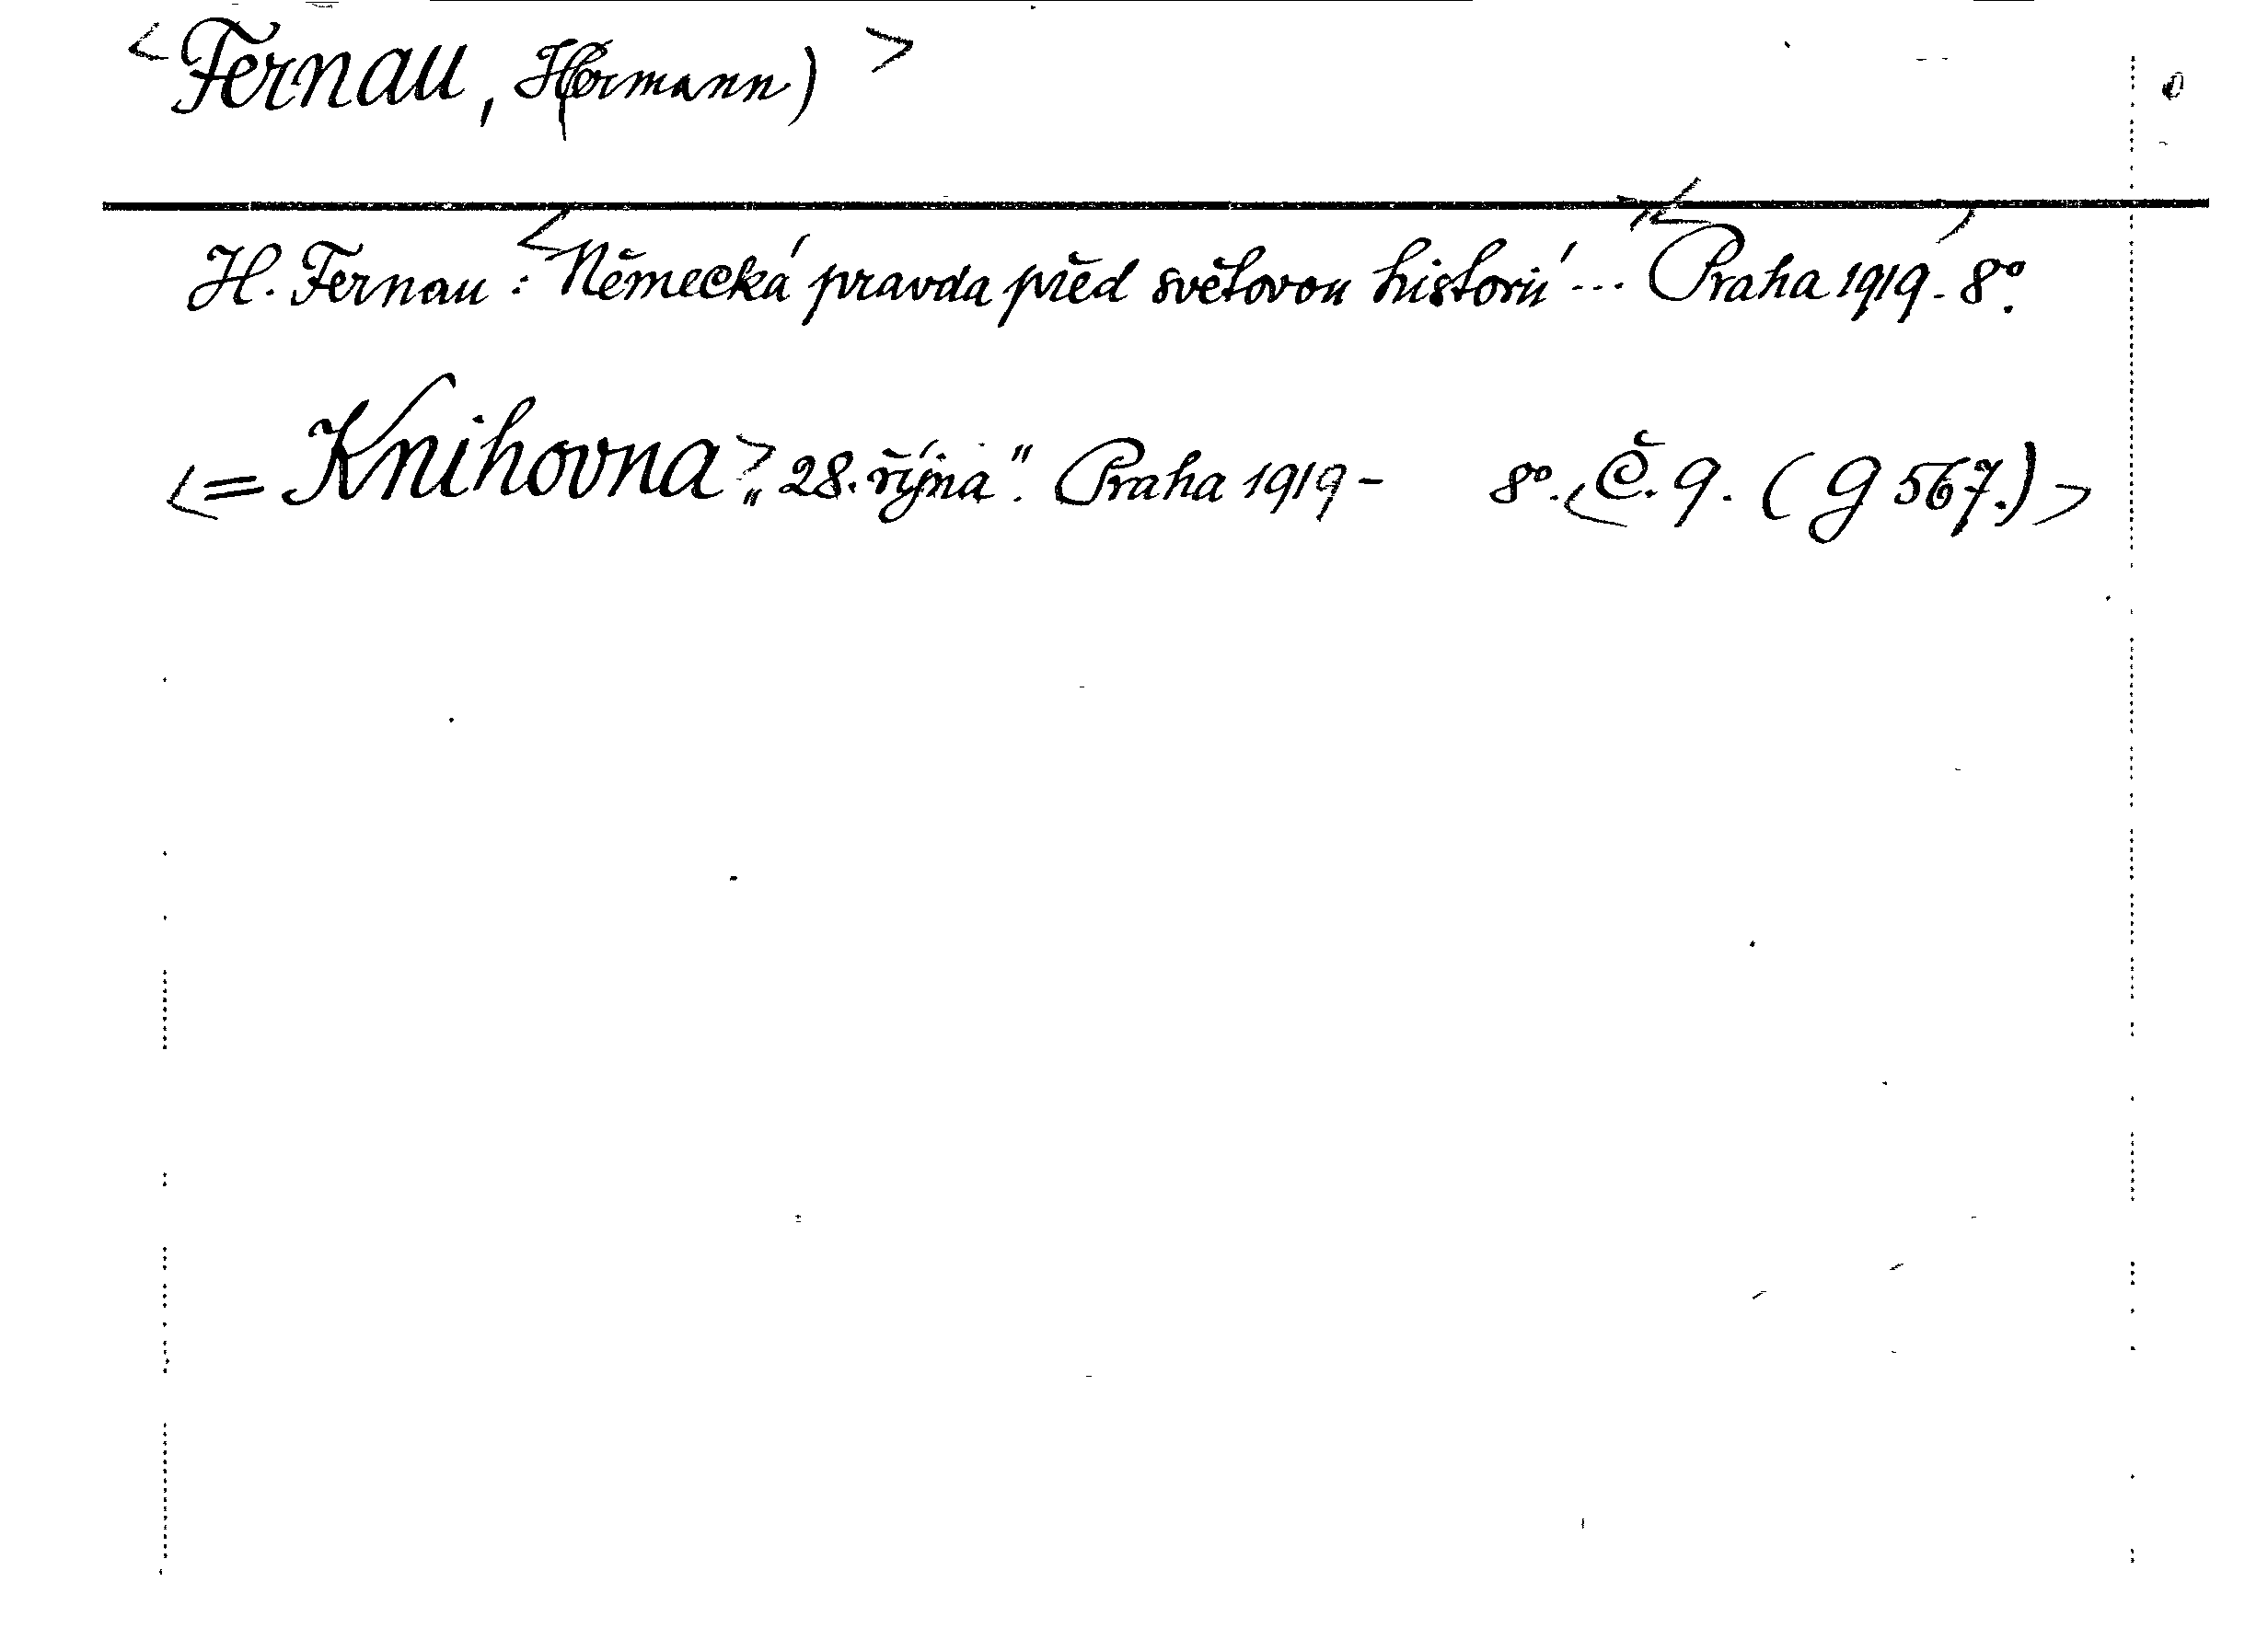 <Fernau, H(ermann)>
H. Fernau: <Německá pravda před světovou historií...> <Praha 1919> - 8°.
<= Knihovna> „28. října“. Praha 1919 - 8°. <Č. 9. (G 567.)>